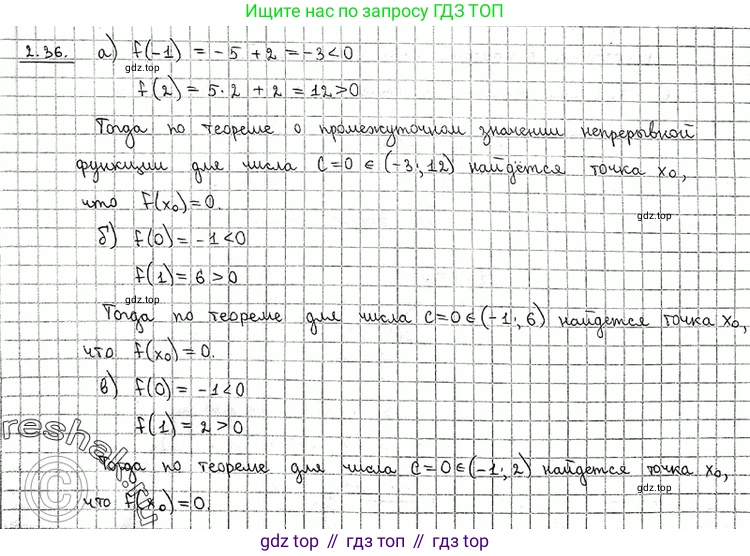 Ищите нас по запросу ГДЗ ТОП
2.36. а) f(-1) = -5 + 2 = -3 < 0
gdz.top
f(2) = 5·2 + 2 = 12 > 0
Тогда по теореме о промежуточном значении непрерывной
функции для числа C=0 ∈ (-3; 12) найдётся точка x₀,
что f(x₀)=0.
gdz.top
б) f(0) = -1 < 0
f(1) = 6 > 0
gdz.top
Тогда по теореме для числа C=0 ∈ (-1; 6) найдется точка x₀,
что f(x₀)=0.
в) f(0) = -1 < 0
f(1) = 2 > 0
Тогда по теореме для числа C=0 ∈ (-1; 2) найдется точка x₀,
gdz.top
что f(x₀)=0.
reshak.ru
gdz.top // гдз.топ // гдз.top